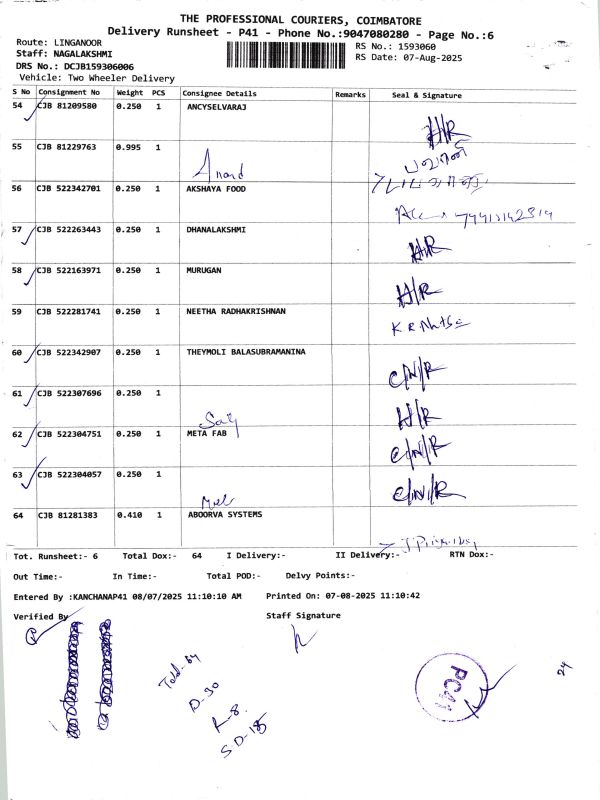 THE PROFESSIONAL COURIERS, COIMBATORE
Delivery Runsheet - P41 - Phone No.:9047080280 - Page No.:6
Route: LINGANOOR
Staff: NAGALAKSHMI
DRS No.: DCJB159306006
Vehicle: Two Wheeler Delivery
RS No.: 1593060
RS Date: 07-Aug-2025
S No Consignment No Weight PCS Consignee Details Remarks Seal & Signature
54 CJB 81209580 0.250 1 ANCYSELVARAJ H/R
55 CJB 81229763 0.995 1
Anand
56 CJB 522342701 0.250 1 AKSHAYA FOOD
57 CJB 522263443 0.250 1 DHANALAKSHMI H/R
58 CJB 522163971 0.250 1 MURUGAN H/R
59 CJB 522281741 0.250 1 NEETHA RADHAKRISHNAN
60 CJB 522342907 0.250 1 THEYMOLI BALASUBRAMANINA C/N/R
61 CJB 522307696 0.250 1 H/R
62 CJB 522304751 0.250 1 META FAB C/N/R
63 CJB 522304057 0.250 1 C/N/R
64 CJB 81281383 0.410 1 ABOORVA SYSTEMS
Tot. Runsheet:- 6 Total Dox:- 64 I Delivery:- II Delivery:- RTN Dox:-
Out Time:- In Time:- Total POD:- Delvy Points:-
Entered By :KANCHANAP41 08/07/2025 11:10:10 AM Printed On: 07-08-2025 11:10:42
Verified By Staff Signature
Total-64
D-30
R-8
S D-18
PC41
24